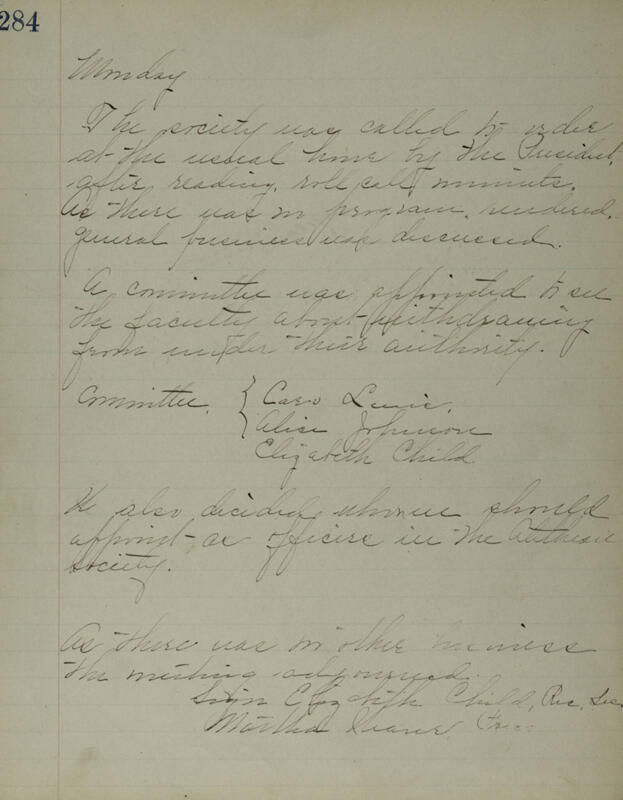 284
Monday
The society was called to order
at the usual time by the President,
after reading, roll call, minutes.
As there was no program, rendered,
general business was discussed.
A committee was appointed to see
the faculty about withdrawing
from under their authority.
Committee. { Caro
Alice Johnson
Elizabeth Child
We also decided whom we should
appoint as officers in the
society.
As there was no other business
the meeting adjourned.
Sign Elizabeth Child, Rec. Sec.
Martha Pres.